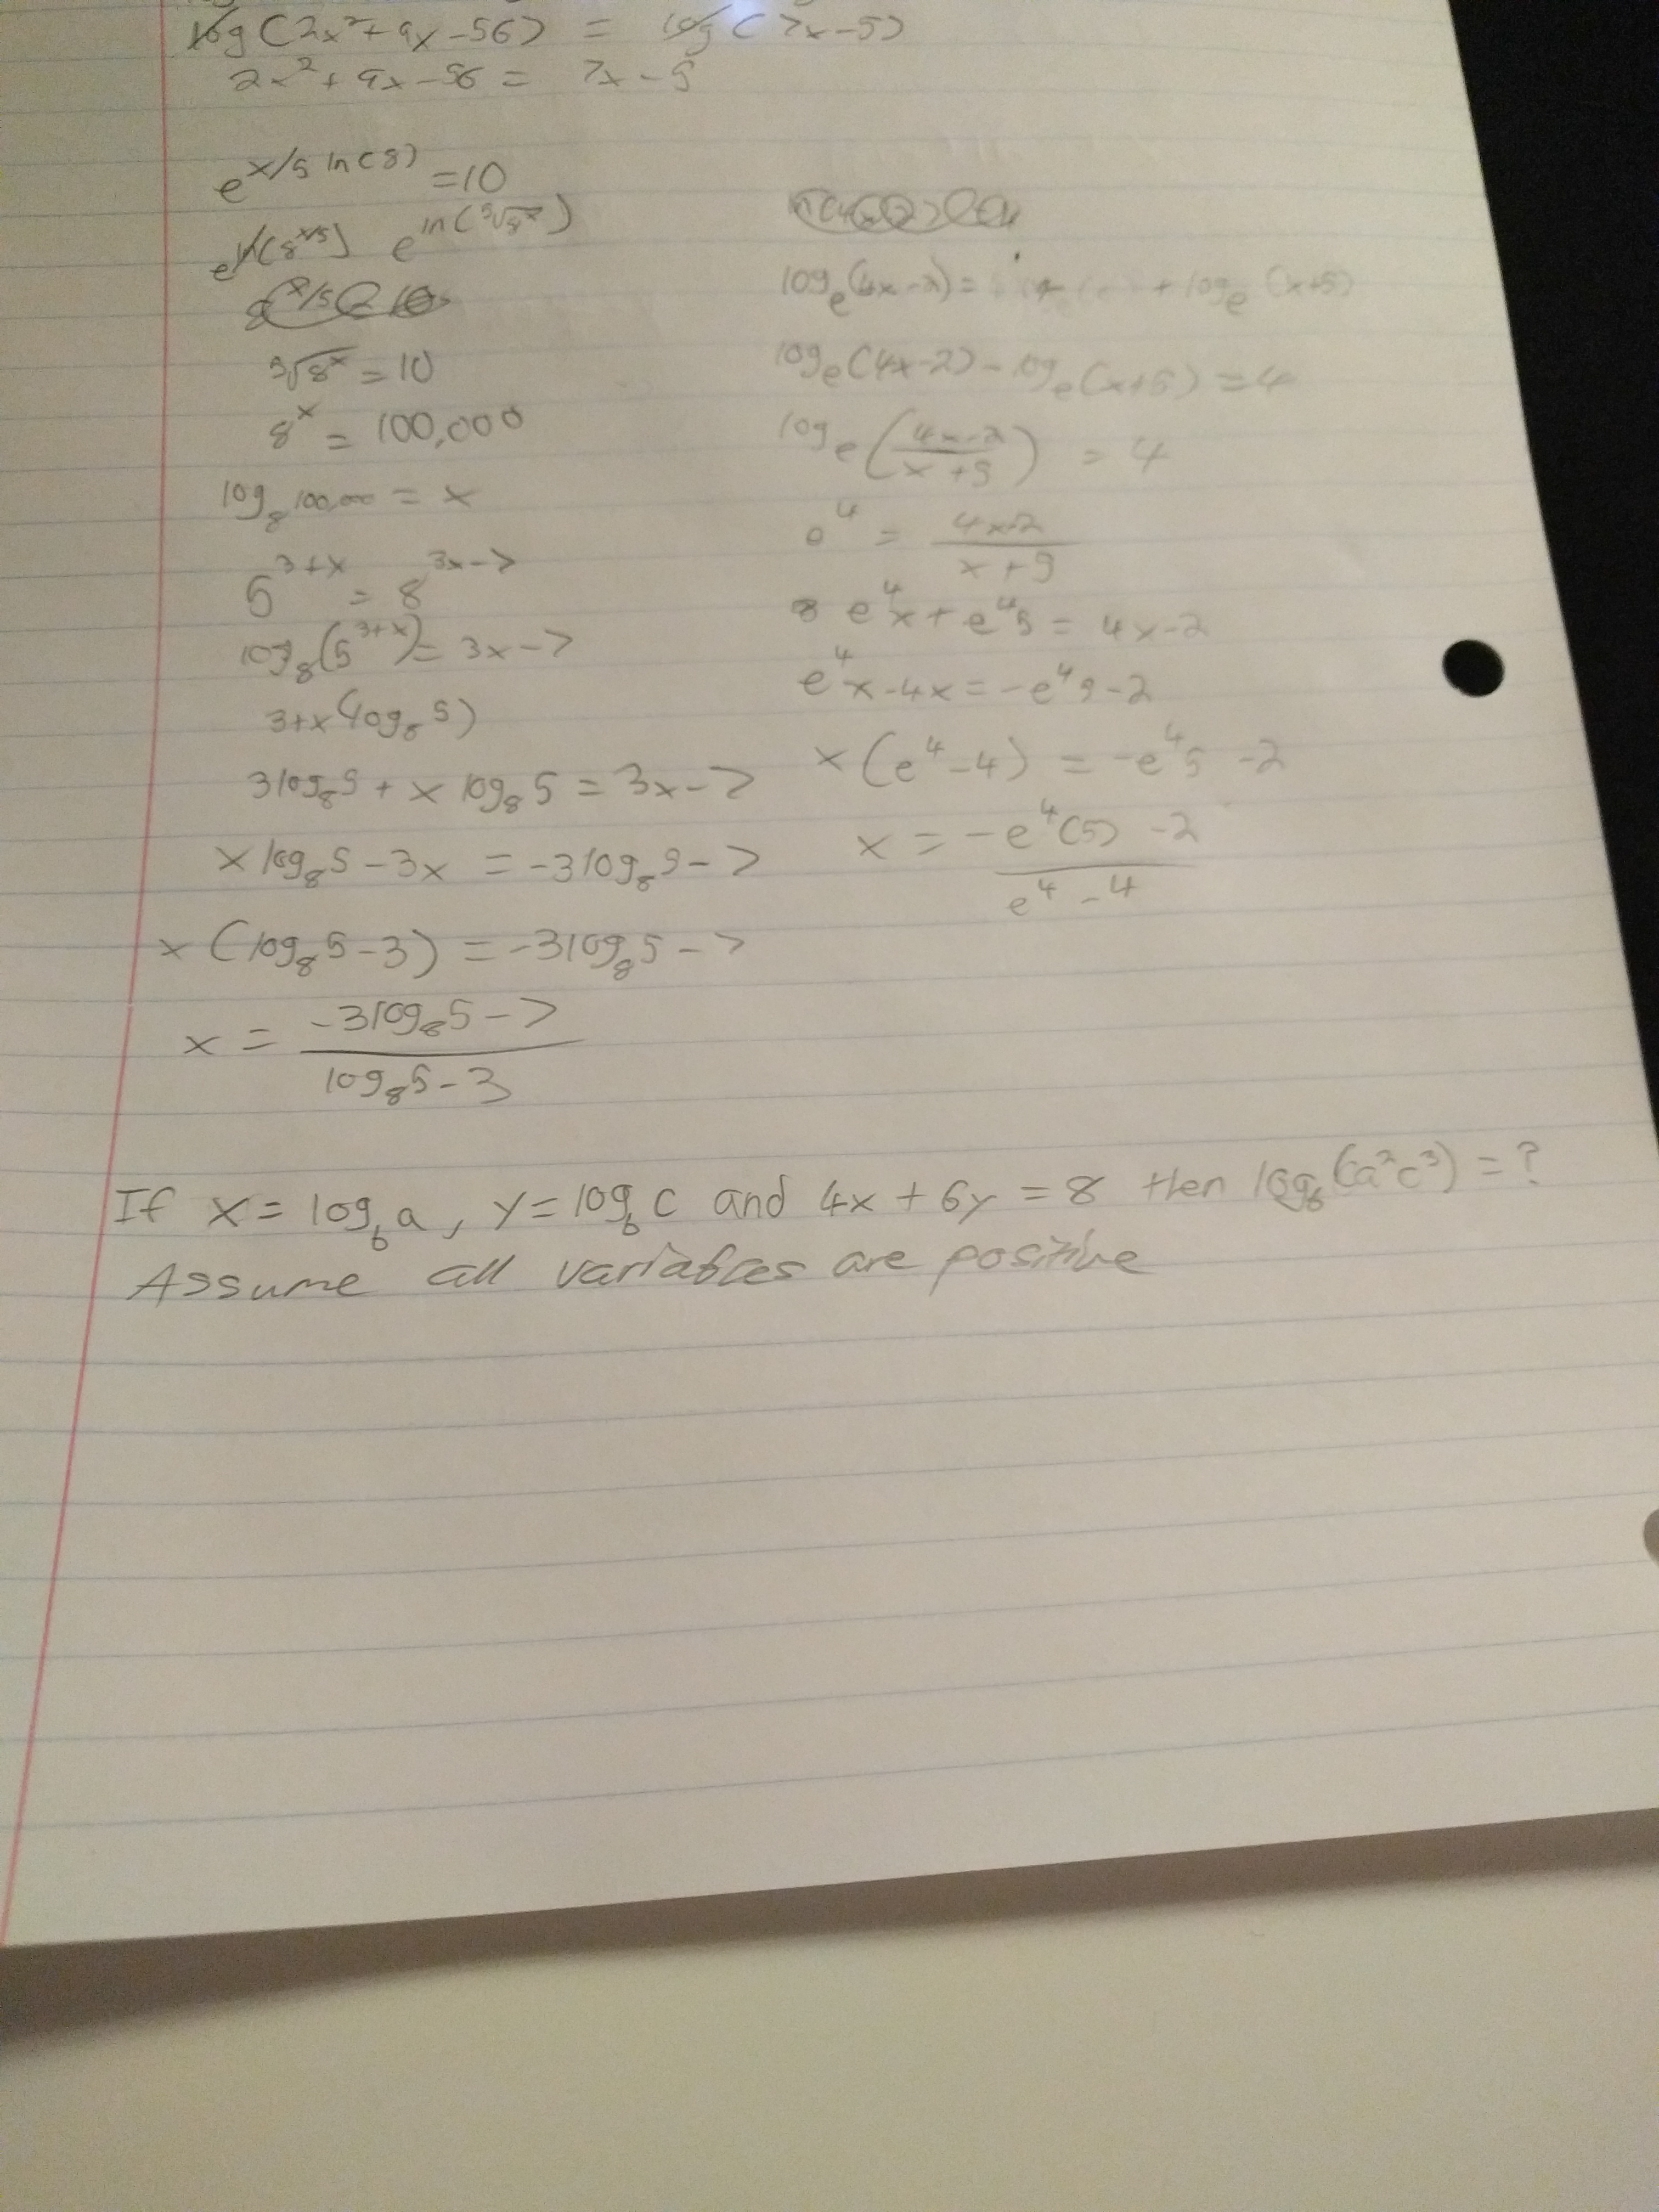 log(2x²+9x-56) = log(7x-5)
2x²+9x-56 = 7x-5
e^(x/5 ln(8)) = 10
e^(ln(8^(x/5))) e^(ln(⁵√8ˣ))
⁵√8ˣ = 10
8ˣ = 100,000
log₈ 100,000 = x
5^(3+x) = 8^(3x-7)
log₈(5^(3+x)) = 3x-7
3+x(log₈5)
3log₈5 + x log₈5 = 3x-7
x log₈5 - 3x = -3log₈5-7
x(log₈5-3) = -3log₈5-7
x = (-3log₈5-7)/(log₈5-3)
logₑ(4x-2) = + logₑ(x+5)
logₑ(4x-2) - logₑ(x+5) = 4
logₑ((4x-2)/(x+5)) = 4
e⁴ = (4x-2)/(x+5)
e⁴x + e⁴5 = 4x-2
e⁴x-4x = -e⁴5-2
x(e⁴-4) = -e⁴5 -2
x = (-e⁴(5) -2)/(e⁴-4)
If x = log_b a, y = log_b c and 4x + 6y = 8 then log_b(a²c³) = ?
Assume all variables are positive